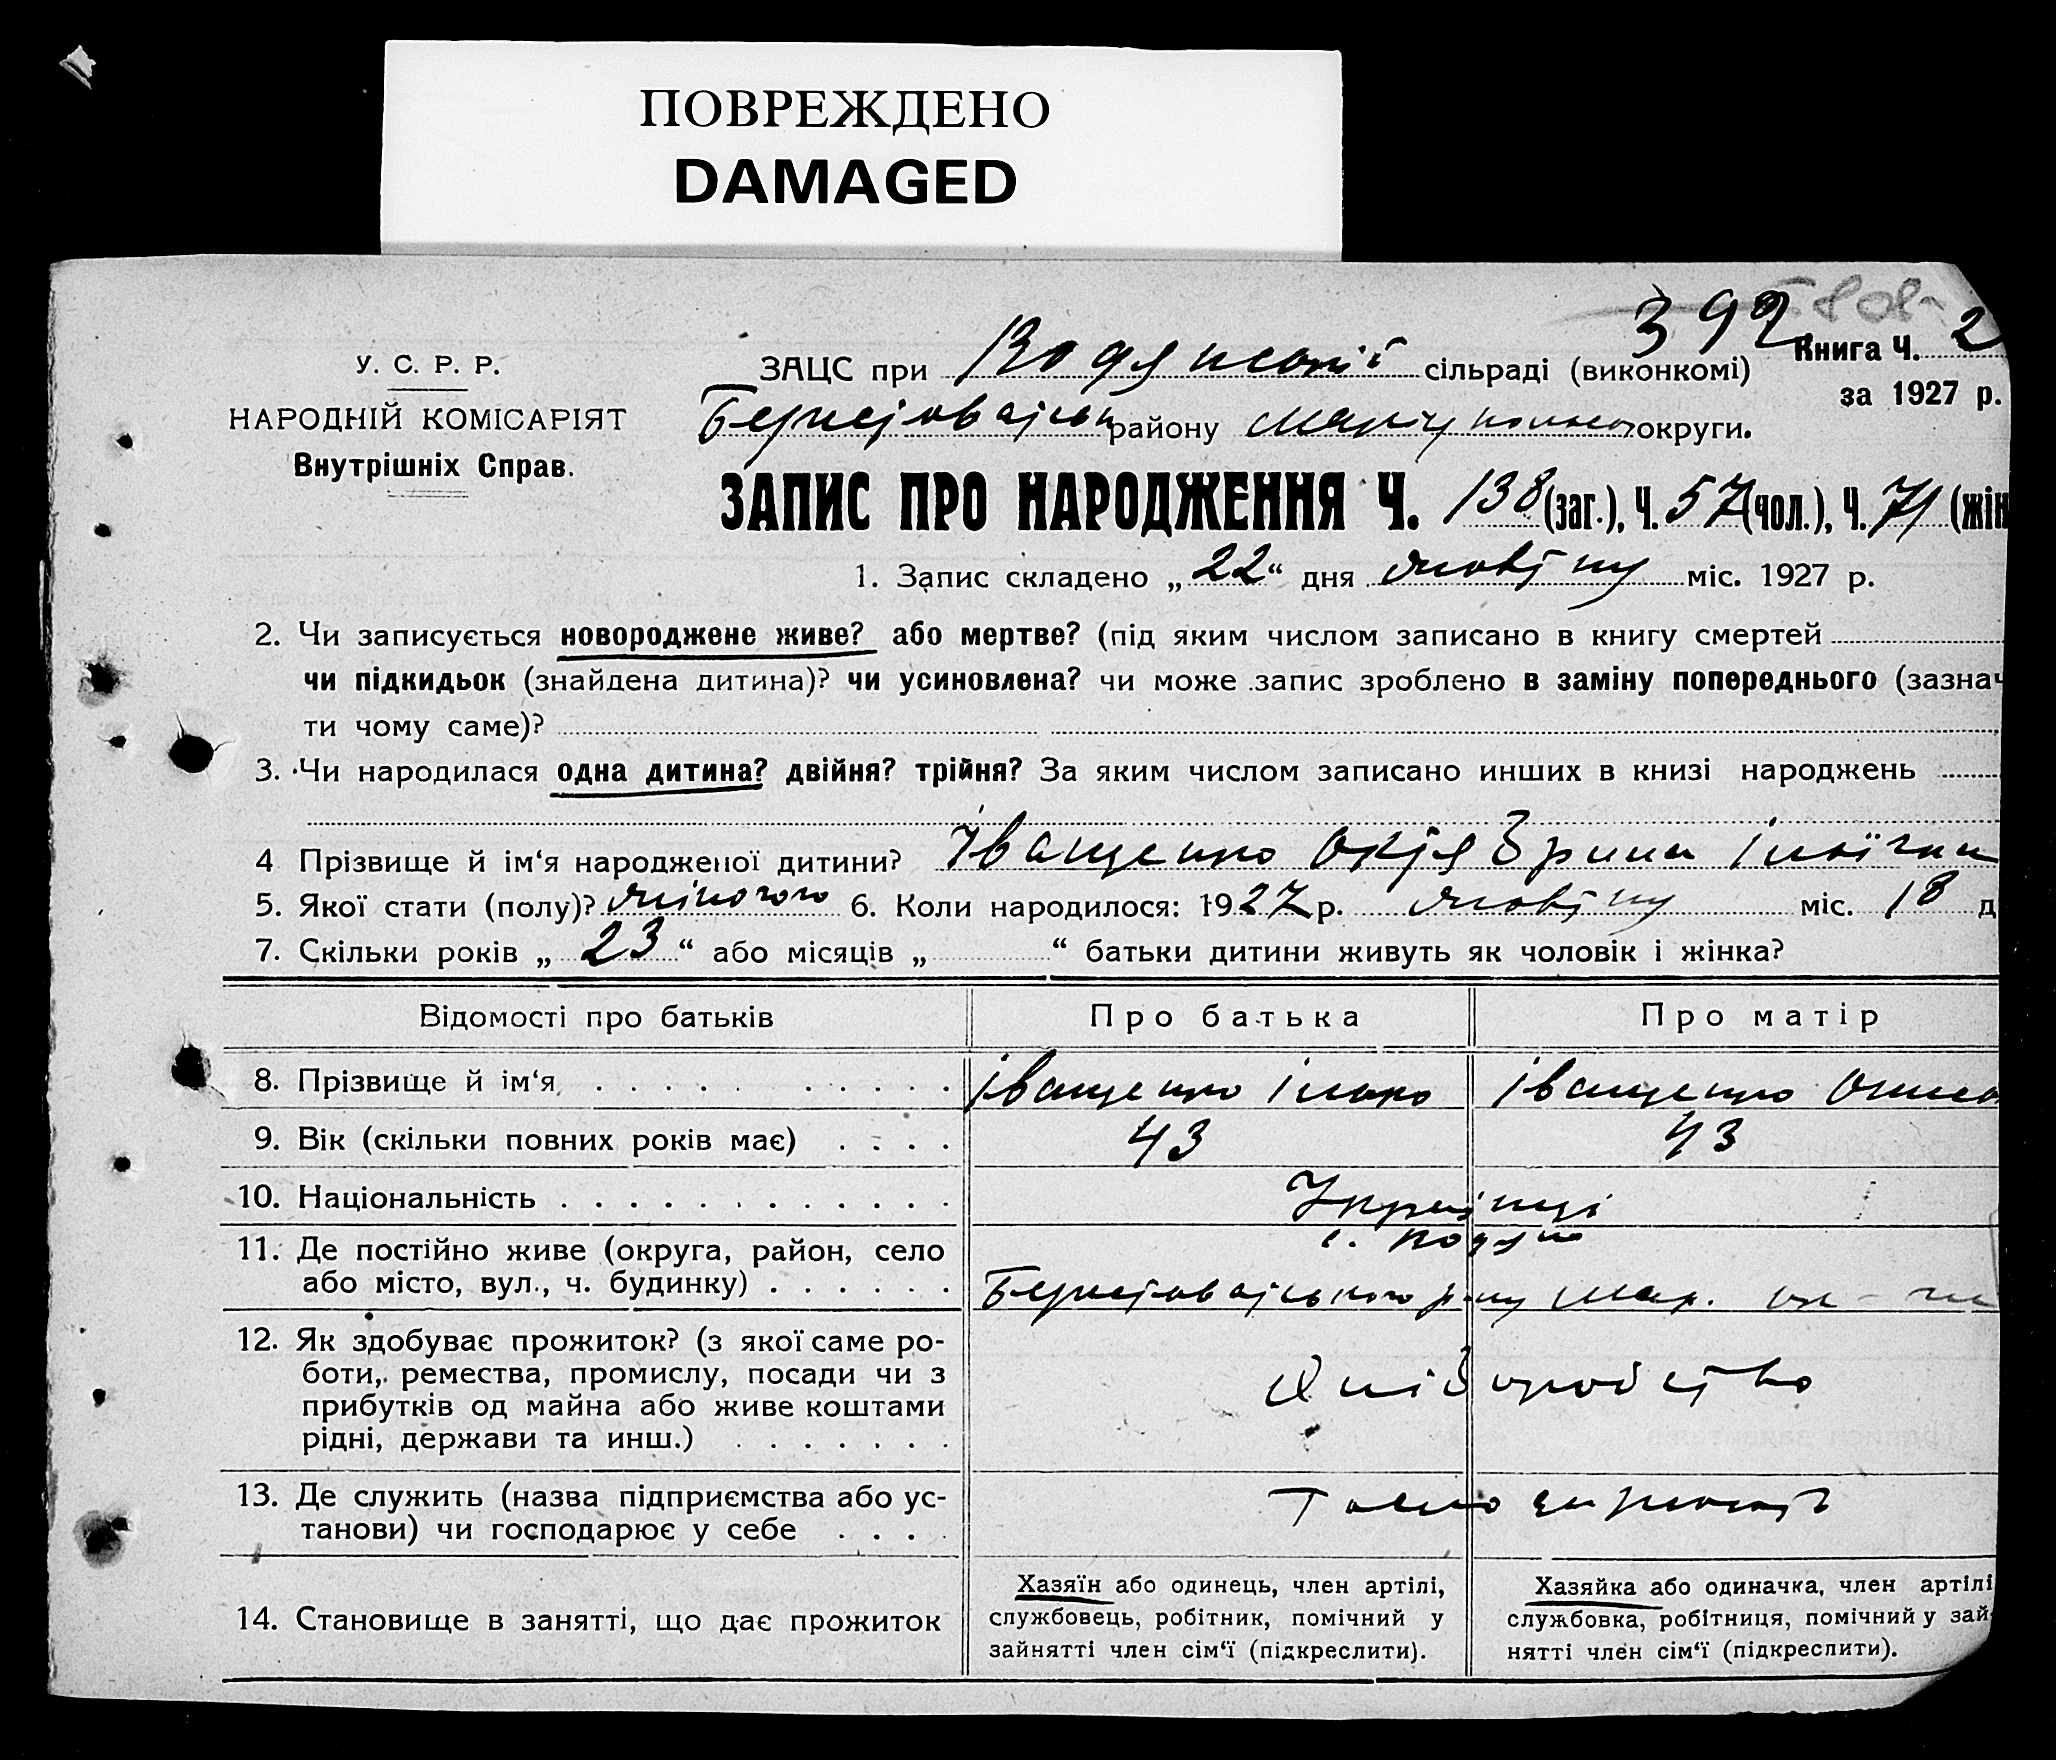 ПОВРЕЖДЕНО
DAMAGED
392
Книга Ч. 2
за 1927 р.
У. С. Р. Р.
НАРОДНІЙ КОМІСАРІЯТ
Внутрішніх Справ.
ЗАЦС при Водянській сільраді (виконкомі)
району округи.
ЗАПИС ПРО НАРОДЖЕННЯ Ч. 138 (заг.), Ч. 57 (чол.), Ч. 71 (жін
1. Запис складено „ 22 “ дня жовтня міс. 1927 р.
2. Чи записується новороджене живе? або мертве? (під яким числом записано в книгу смертей
чи підкидьок (знайдена дитина)? чи усиновлена? чи може запис зроблено в заміну попереднього (зазнач
ти чому саме)?
3. Чи народилася одна дитина? двійня? трійня? За яким числом записано инших в книзі народжень
4 Прізвище й ім‘я народженої дитини? Іващенко Октябрина
5. Якої стати (полу)? жіночого 6. Коли народилося: 1927 р. жовтня міс. 18 д
7. Скільки років „ 23 “ або місяців „ “ батьки дитини живуть як чоловік і жінка?
Відомості про батьків Про батька Про матір
8. Прізвище й ім‘я Іващенко Іващенко
9. Вік (скільки повних років має) 43 43
10. Національність Українці
11. Де постійно живе (округа, район, село
або місто, вул., ч. будинку)
12. Як здобуває прожиток? (з якої саме ро-
боти, ремества, промислу, посади чи з
прибутків од майна або живе коштами
рідні, держави та инш.) Хліборобство
13. Де служить (назва підприємства або ус-
танови) чи господарює у себе
14. Становище в занятті, що дає прожиток
Хазяїн або одинець, член артілі,
службовець, робітник, помічний у
зайнятті член сім‘ї (підкреслити).
Хазяйка або одиначка, член артілі
службовка, робітниця, помічний у зай-
нятті член сім‘ї (підкреслити).